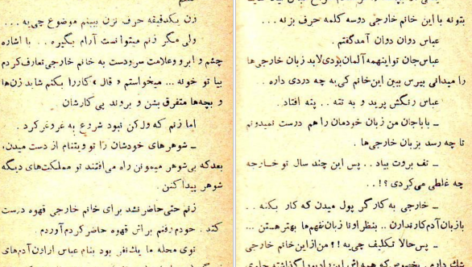 بتونه با این خانم خارجی دوسه کلمه حرف بزنه ...
عباس دوان دوان آمد گفتم.
عباس‌جان تو اینهمه آلمان بودی لابد زبان خارجی‌ها
را میدانی بپرس ببین این خانم کی به چه دردی داره.
عباس رنگش پرید و به تته.. پته افتاد.
ـ باباجان من زبان خودمان را هم درست نمیدونم
تا چه رسد بزبان خارجی‌ها.
ـ تف بروت بیاد.. پس این چند سال تو خارجه
چه غلطی می‌کردی؟!..
ـ خارجی به کارگر پول میدن که کار بکنه..
بازبان آدم کار ندارن.. بنظر اونا زبان نفهم‌ها بهترهستن...
ـ پس حالا تکلیف چی‌یه؟! من از این خانم خارجی
زن یکدقیقه حرف نزن ببینم موضوع چی‌یه...
ولی مگر زنم میتوانست آرام بگیره.. با اشاره
چشم و ابرو و علامت سر و دست به خانم خارجی تعارف کردم
بیا تو خونه... میخواستم «قال» کار را بکنم شاید زن‌ها
و بچه‌ها متفرق بشن و بروند پی کارشان
اما زنم که ول کن نبود شروع به غروغر کرد.
ـ شوهرهای خودشان را تو ویتنام از دست میدن،
بعد که بی‌شوهر میمونن راه می‌افتند تو مملکت‌های دیگه
شوهر پیدا کنن.
زنم حتی حاضر نشد برای خانم خارجی قهوه درست
کند. خودم رفتم براش قهوه حاضر کردم آوردم.
توی محله ما یک‌نفر بود بنام عباس ازاون آدم‌های